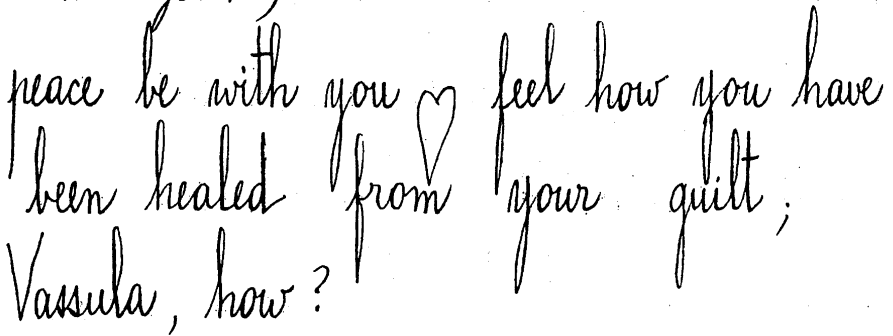 peace be with you ♡ feel how you have
been healed from your guilt;
Vassula, how?